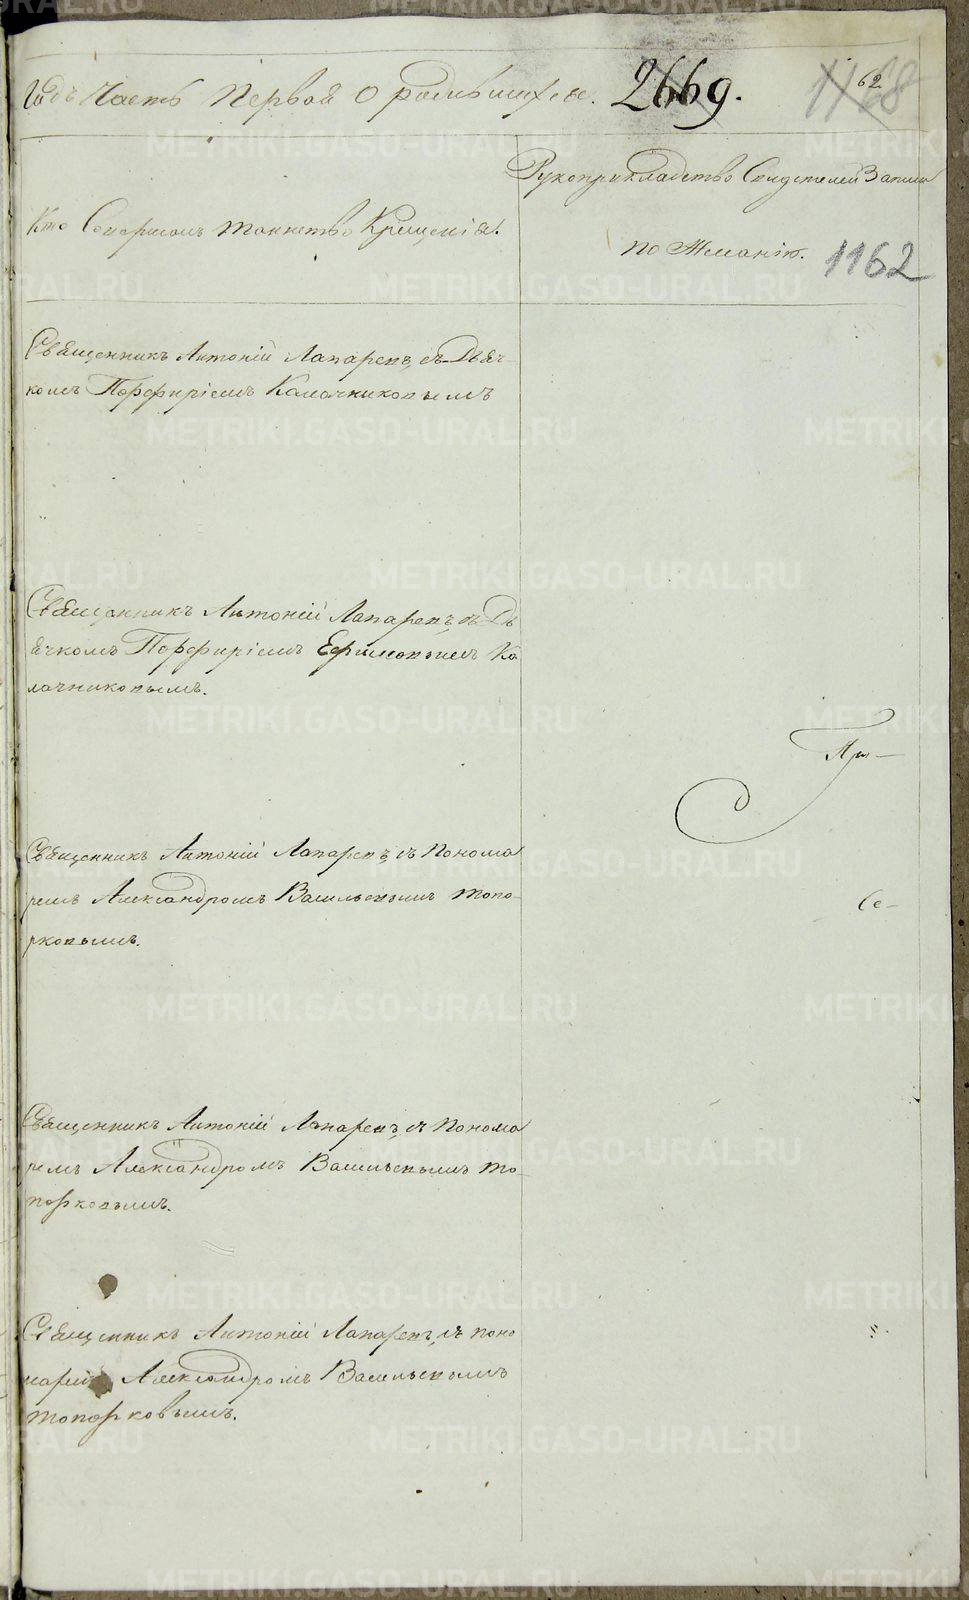 Годъ Часть Первая О родившихся. 2669. 1168 62
Рукоприкладство Свидетелей Записи
Кто Совершалъ таинство Крещенія.
по Желанію. 1162
Священникъ Антоній Лапаревъ, съ Дьяч-
комъ Порфиріемъ Калачниковымъ
Священникъ Антоній Лапаревъ, съ Дь
ячкомъ Порфиріемъ Ефимовымъ Ка
лачниковымъ.
При-
Священникъ Антоній Лапаревъ, съ Понома
ремъ Александромъ Васильевымъ Топо-
рковымъ.
Се-
Священникъ Антоній Лапаревъ, съ Понома
ремъ Александромъ Васильевымъ То-
порковымъ.
Священникъ Антоній Лапаревъ, съ поно
маремъ Александромъ Васильевымъ
Топорковымъ.
METRIKI.GASO-URAL.RU